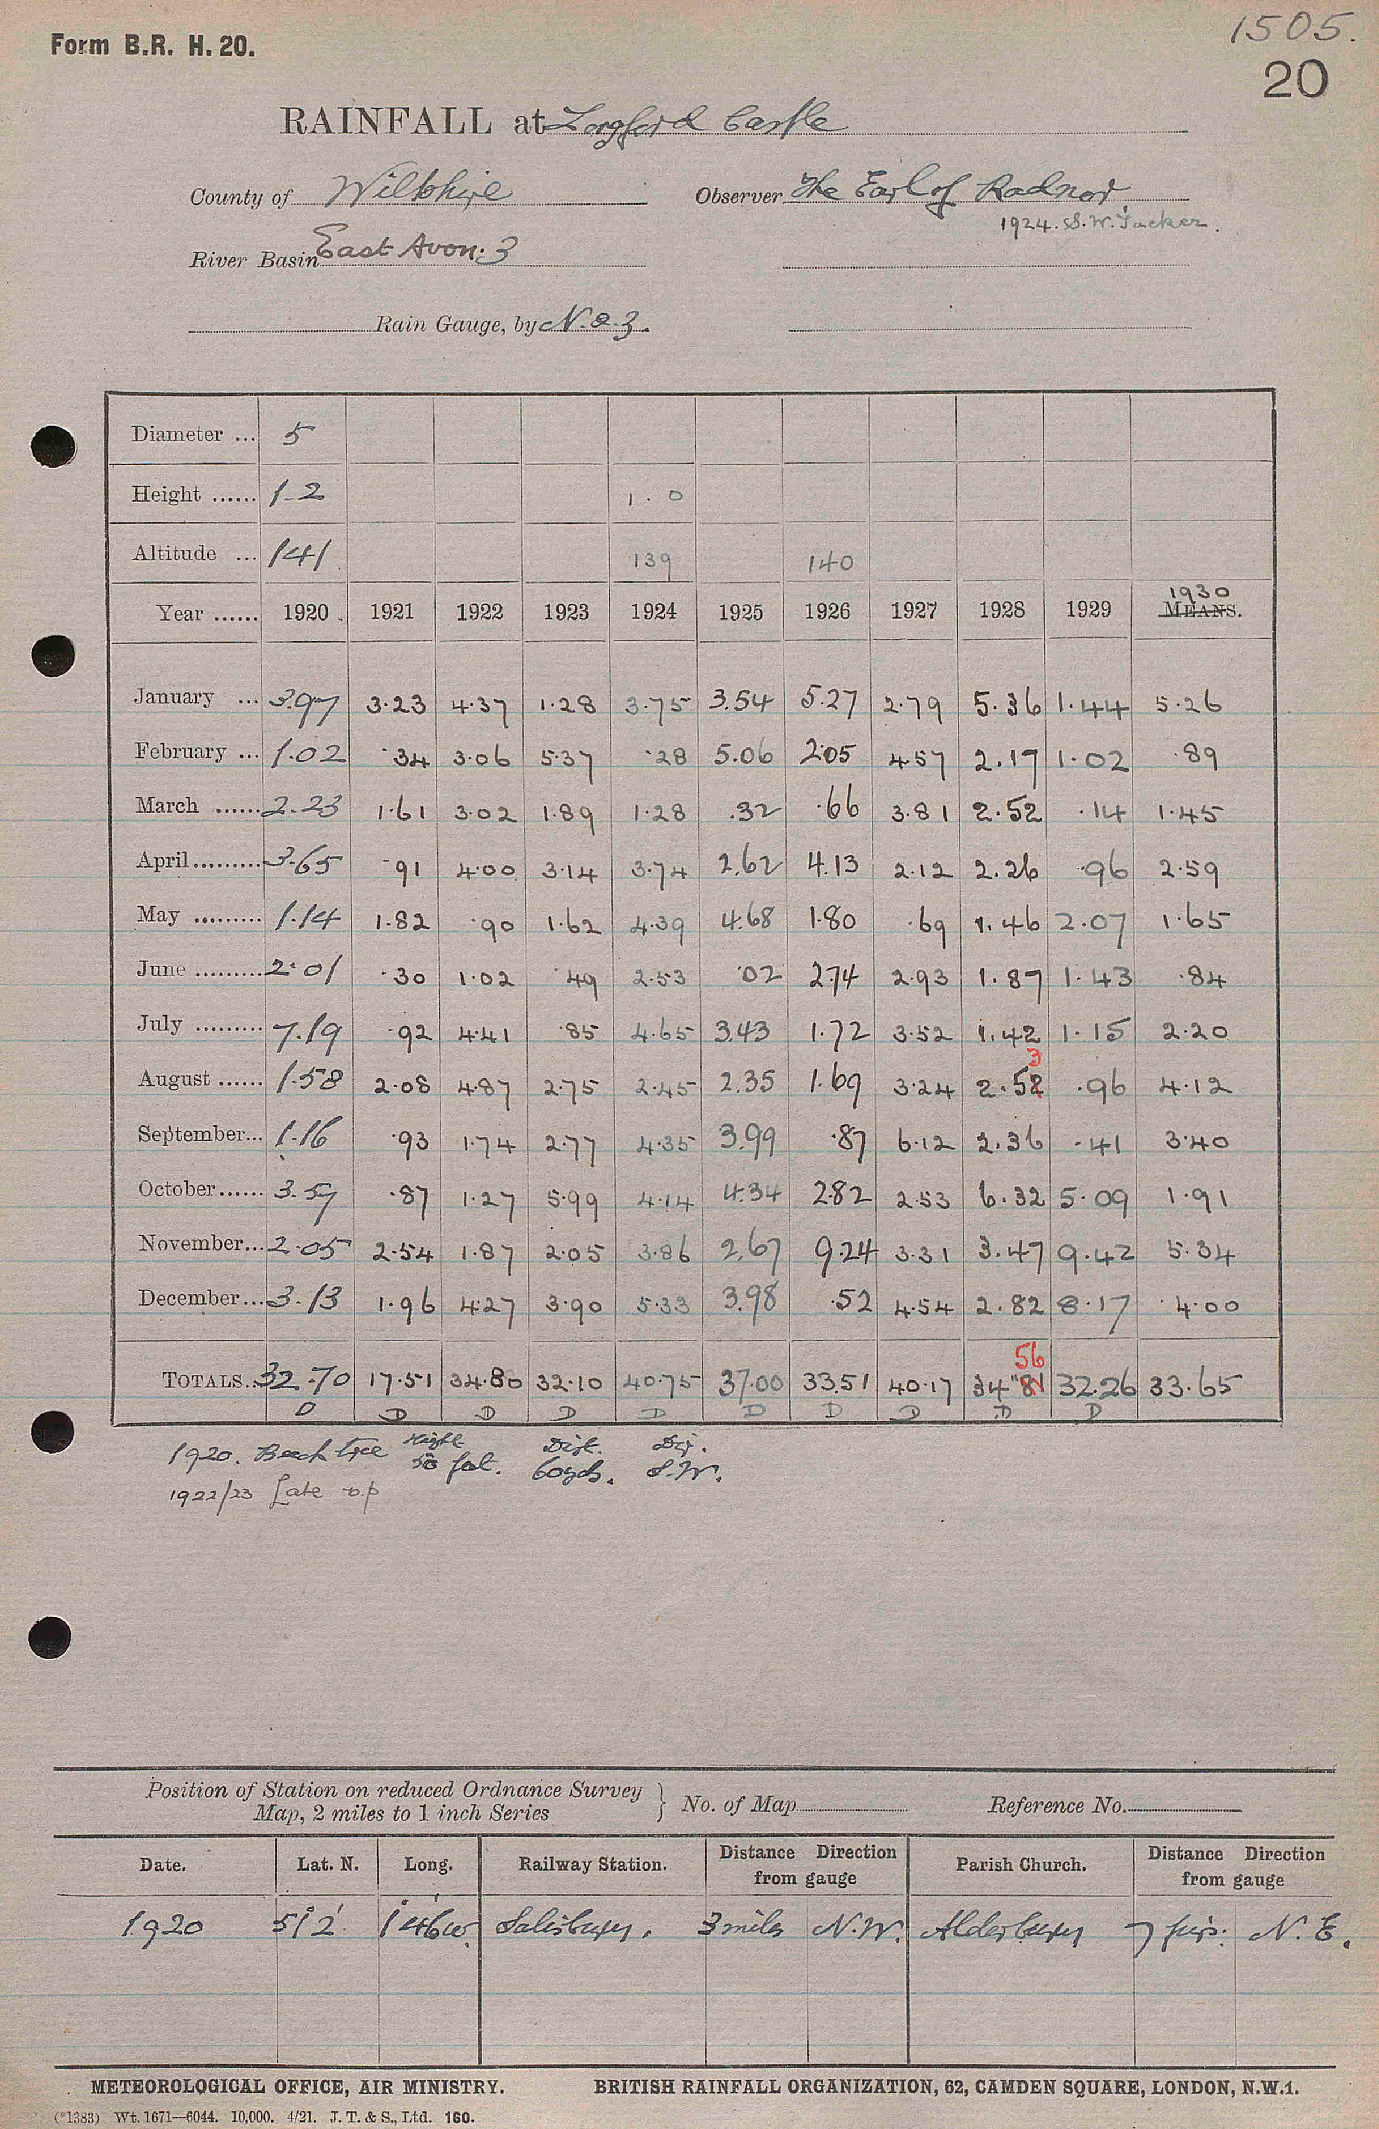 1505.
Form B.R. H. 20.
20
RAINFALL at Longford Castle
County of Wiltshire Observer The Earl of Radnor
1924. S.W. Tucker.
River Basin East Avon. 3
Rain Gauge, by N. & Z.
Diameter ... 5
Height ...... 1-2 1.0
Altitude ... 141 139 140
Year ...... 1920 1921 1922 1923 1924 1925 1926 1927 1928 1929 1930 MEANS.
January ... 3.97 3.23 4.37 1.28 3.75 3.54 5.27 2.79 5.36 1.44 5.26
February ... 1.02 .34 3.06 5.37 .28 5.06 2.05 4.57 2.17 1.02 .89
March ...... 2.23 1.61 3.02 1.89 1.28 .32 .66 3.81 2.52 .14 1.45
April......... 3.65 .91 4.00 3.14 3.74 2.62 4.13 2.12 2.26 .96 2.59
May ......... 1.14 1.82 .90 1.62 4.39 4.68 1.80 .69 1.46 2.07 1.65
June ......... 2.01 .30 1.02 .49 2.53 .02 2.74 2.93 1.87 1.43 .84
July ......... 7.19 .92 4.41 .85 4.65 3.43 1.72 3.52 1.42 1.15 2.20
3
August ...... 1.58 2.08 4.87 2.75 2.45 2.35 1.69 3.24 2.52 .96 4.12
September... 1.16 .93 1.74 2.77 4.35 3.99 .87 6.12 2.36 .41 3.40
October...... 3.57 .87 1.27 5.99 4.14 4.34 2.82 2.53 6.32 5.09 1.91
November... 2.05 2.54 1.87 2.05 3.86 2.67 9.24 3.31 3.47 9.42 5.34
December... 3.13 1.96 4.27 3.90 5.33 3.98 .52 4.54 2.82 8.17 4.00
56
TOTALS... 32.70 17.51 34.80 32.10 40.75 37.00 33.51 40.17 34.81 32.26 33.65
D D D D D D D D D D
Height Dist. Dir.
1920. Beech tree 50 feet. 60yds. S.W.
1922/23 Late o.p
Position of Station on reduced Ordnance Survey
Map, 2 miles to 1 inch Series } No. of Map Reference No.
Date. Lat. N. Long. Railway Station. Distance Direction from gauge Parish Church. Distance Direction from gauge
1920 51° 2' 1° 46' W. Salisbury. 3 miles N.W. Alderbury 7 furs. N.E.
METEOROLOGICAL OFFICE, AIR MINISTRY. BRITISH RAINFALL ORGANIZATION, 62, CAMDEN SQUARE, LONDON, N.W.1.
(*1383) Wt. 1671—6044. 10,000. 4/21. J. T. & S., Ltd. 160.